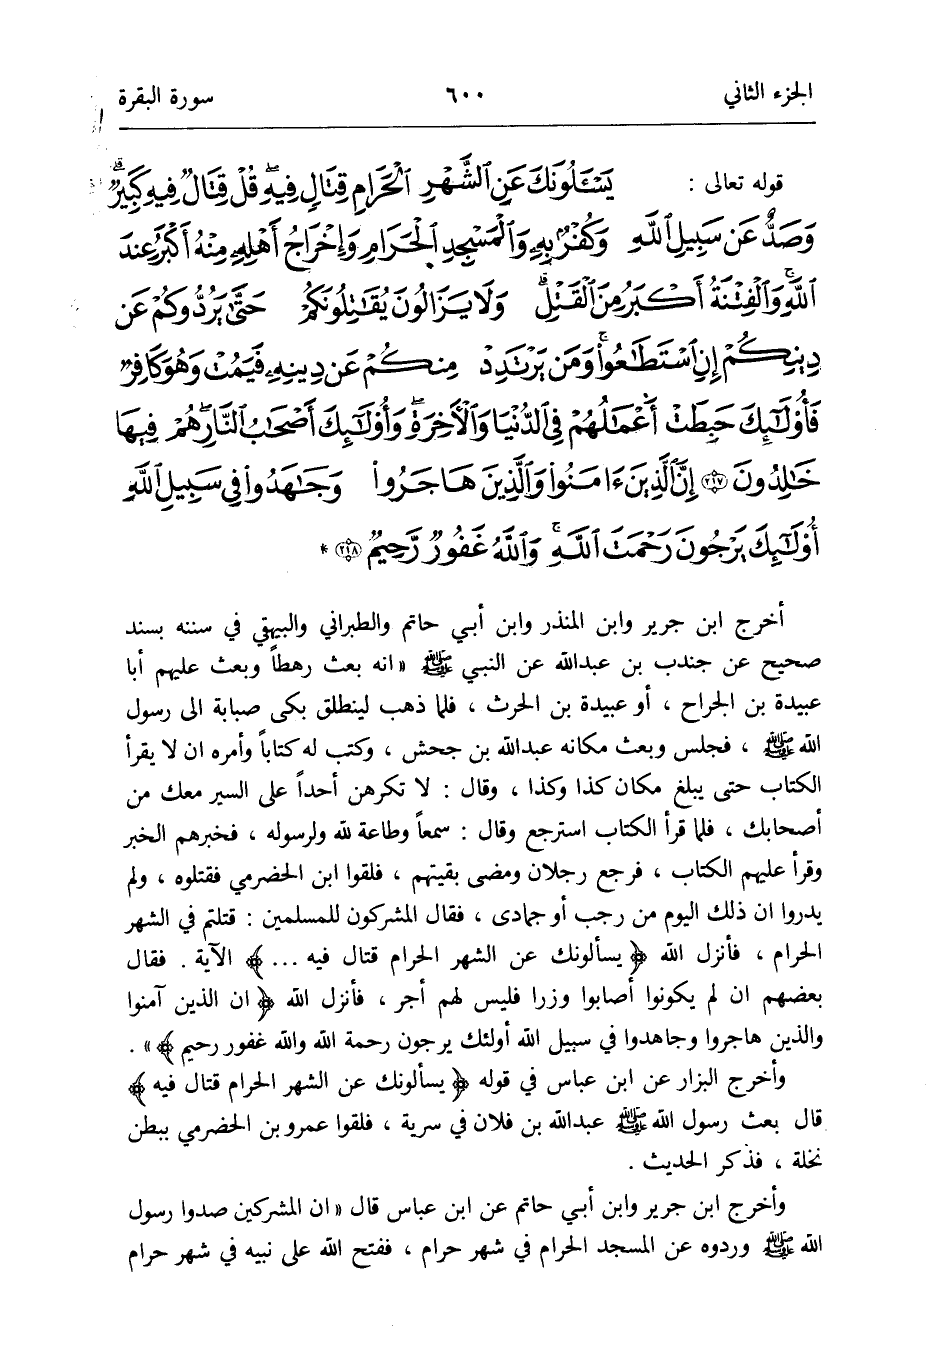 الجزء الثاني ٦٠٠ سورة البقرة
قوله تعالى : يَسْـَٔلُونَكَ عَنِ ٱلشَّهْرِ ٱلْحَرَامِ قِتَالٍ فِيهِ ۖ قُلْ قِتَالٌ فِيهِ كَبِيرٌ ۖ
وَصَدٌّ عَن سَبِيلِ ٱللَّهِ وَكُفْرٌۢ بِهِۦ وَٱلْمَسْجِدِ ٱلْحَرَامِ وَإِخْرَاجُ أَهْلِهِۦ مِنْهُ أَكْبَرُ عِندَ
ٱللَّهِ ۚ وَٱلْفِتْنَةُ أَكْبَرُ مِنَ ٱلْقَتْلِ ۗ وَلَا يَزَالُونَ يُقَٰتِلُونَكُمْ حَتَّىٰ يَرُدُّوكُمْ عَن
دِينِكُمْ إِنِ ٱسْتَطَٰعُوا۟ ۚ وَمَن يَرْتَدِدْ مِنكُمْ عَن دِينِهِۦ فَيَمُتْ وَهُوَ كَافِرٌ
فَأُو۟لَٰٓئِكَ حَبِطَتْ أَعْمَٰلُهُمْ فِى ٱلدُّنْيَا وَٱلْأَخِرَةِ ۖ وَأُو۟لَٰٓئِكَ أَصْحَٰبُ ٱلنَّارِ ۖ هُمْ فِيهَا
خَٰلِدُونَ ﴿٢١٧﴾ إِنَّ ٱلَّذِينَ ءَامَنُوا۟ وَٱلَّذِينَ هَاجَرُوا۟ وَجَٰهَدُوا۟ فِى سَبِيلِ ٱللَّهِ
أُو۟لَٰٓئِكَ يَرْجُونَ رَحْمَتَ ٱللَّهِ ۚ وَٱللَّهُ غَفُورٌ رَّحِيمٌ ﴿٢١٨﴾ *
أخرج ابن جرير وابن المنذر وابن أبي حاتم والطبراني والبيهقي في سننه بسند
صحيح عن جندب بن عبدالله عن النبي ﷺ « انه بعث رهطاً وبعث عليهم أبا
عبيدة بن الجراح ، أو عبيدة بن الحرث ، فلما ذهب لينطلق بكى صبابة الى رسول
الله ﷺ ، فجلس وبعث مكانه عبدالله بن جحش ، وكتب له كتاباً وأمره ان لا يقرأ
الكتاب حتى يبلغ مكان كذا وكذا ، وقال : لا تكرهن أحداً على السير معك من
أصحابك ، فلما قرأ الكتاب استرجع وقال : سمعاً وطاعة لله ولرسوله ، فخبرهم الخبر
وقرأ عليهم الكتاب ، فرجع رجلان ومضى بقيتهم ، فلقوا ابن الحضرمي فقتلوه ، ولم
يدروا ان ذلك اليوم من رجب أو جمادى ، فقال المشركون للمسلمين : قتلتم في الشهر
الحرام ، فأنزل الله ﴿ يسألونك عن الشهر الحرام قتال فيه ... ﴾ الآية . فقال
بعضهم ان لم يكونوا أصابوا وزرا فليس لهم أجر ، فأنزل الله ﴿ ان الذين آمنوا
والذين هاجروا وجاهدوا في سبيل الله أولئك يرجون رحمة الله والله غفور رحيم ﴾ » .
وأخرج البزار عن ابن عباس في قوله ﴿ يسألونك عن الشهر الحرام قتال فيه ﴾
قال بعث رسول الله ﷺ عبدالله بن فلان في سرية ، فلقوا عمرو بن الحضرمي ببطن
نخلة ، فذكر الحديث .
وأخرج ابن جرير وابن أبي حاتم عن ابن عباس قال « ان المشركين صدوا رسول
الله ﷺ وردوه عن المسجد الحرام في شهر حرام ، ففتح الله على نبيه في شهر حرام